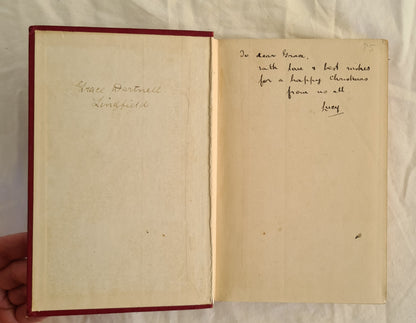 Grace Hartnell
Lindfield
To dear Grace,
with love & best wishes
for a happy Christmas
from us all
Lucy